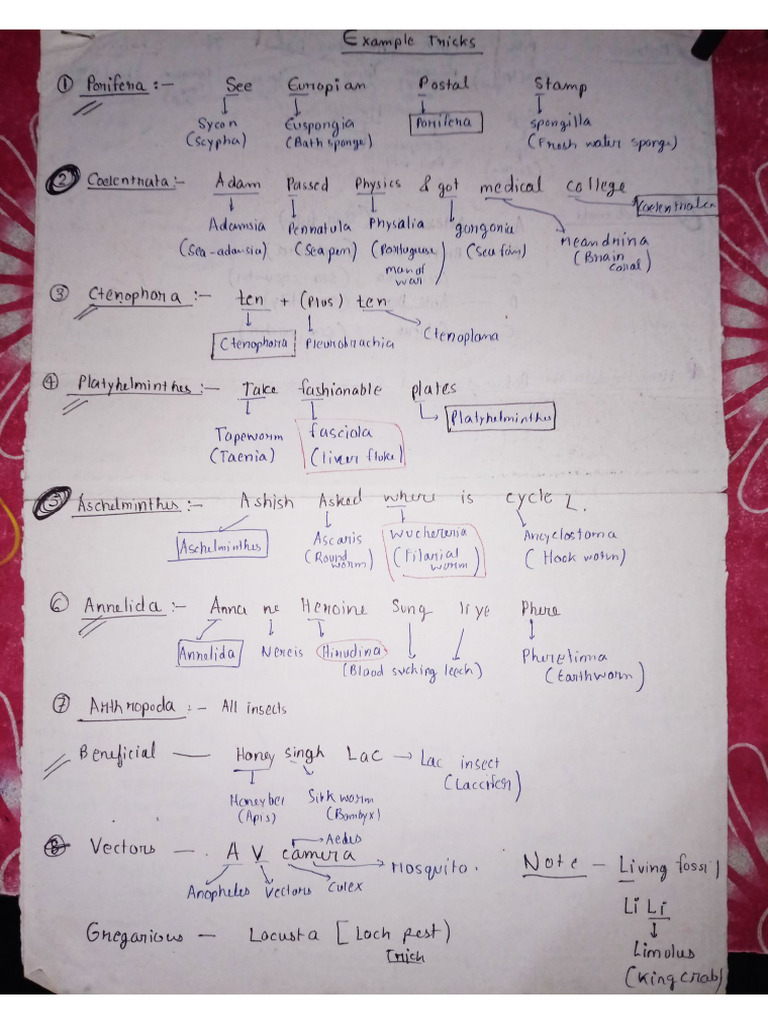 Example Tricks
① Porifera :- See Europian Postal Stamp
Sycon Euspongia Porifera Spongilla
(Scypha) (Bath sponge) (Fresh water sponge)
② Coelentrata :- Adam Passed Physics & got medical college
Coelentrata
Adamsia Pennatula Physalia gorgonia meandrina
(Sea-adamsia) (Sea pen) (Portuguese man of war) (Sea fan) (Brain coral)
③ Ctenophora :- ten + (Plus) ten
Ctenophora Pleurobrachia Ctenoplana
④ Platyhelminthes :- Take fashionable plates
Tapeworm fasciola Platyhelminthes
(Taenia) (liver fluke)
⑤ Aschelminthes :- Ashish Asked where is cycle
Aschelminthes Ascaris Wuchereria Ancyclostoma
(Round worm) (Filarial worm) (Hook worm)
⑥ Annelida :- Anna ne Heroine Sung liye Phere
Annelida Nereis Hirudina Pheretima
(Blood sucking leech) (Earthworm)
⑦ Arthropoda :- All insects
Beneficial — Honey singh Lac → Lac insect
(Laccifer)
Honeybee Silk worm
(Apis) (Bombyx)
⑧ Vectors — A V camera
Aedes
Mosquito.
Anopheles Vectors Culex
Note - Living fossil
Li Li
Limulus
(King crab)
Gregarious — Locusta [Loch pest)
Trick